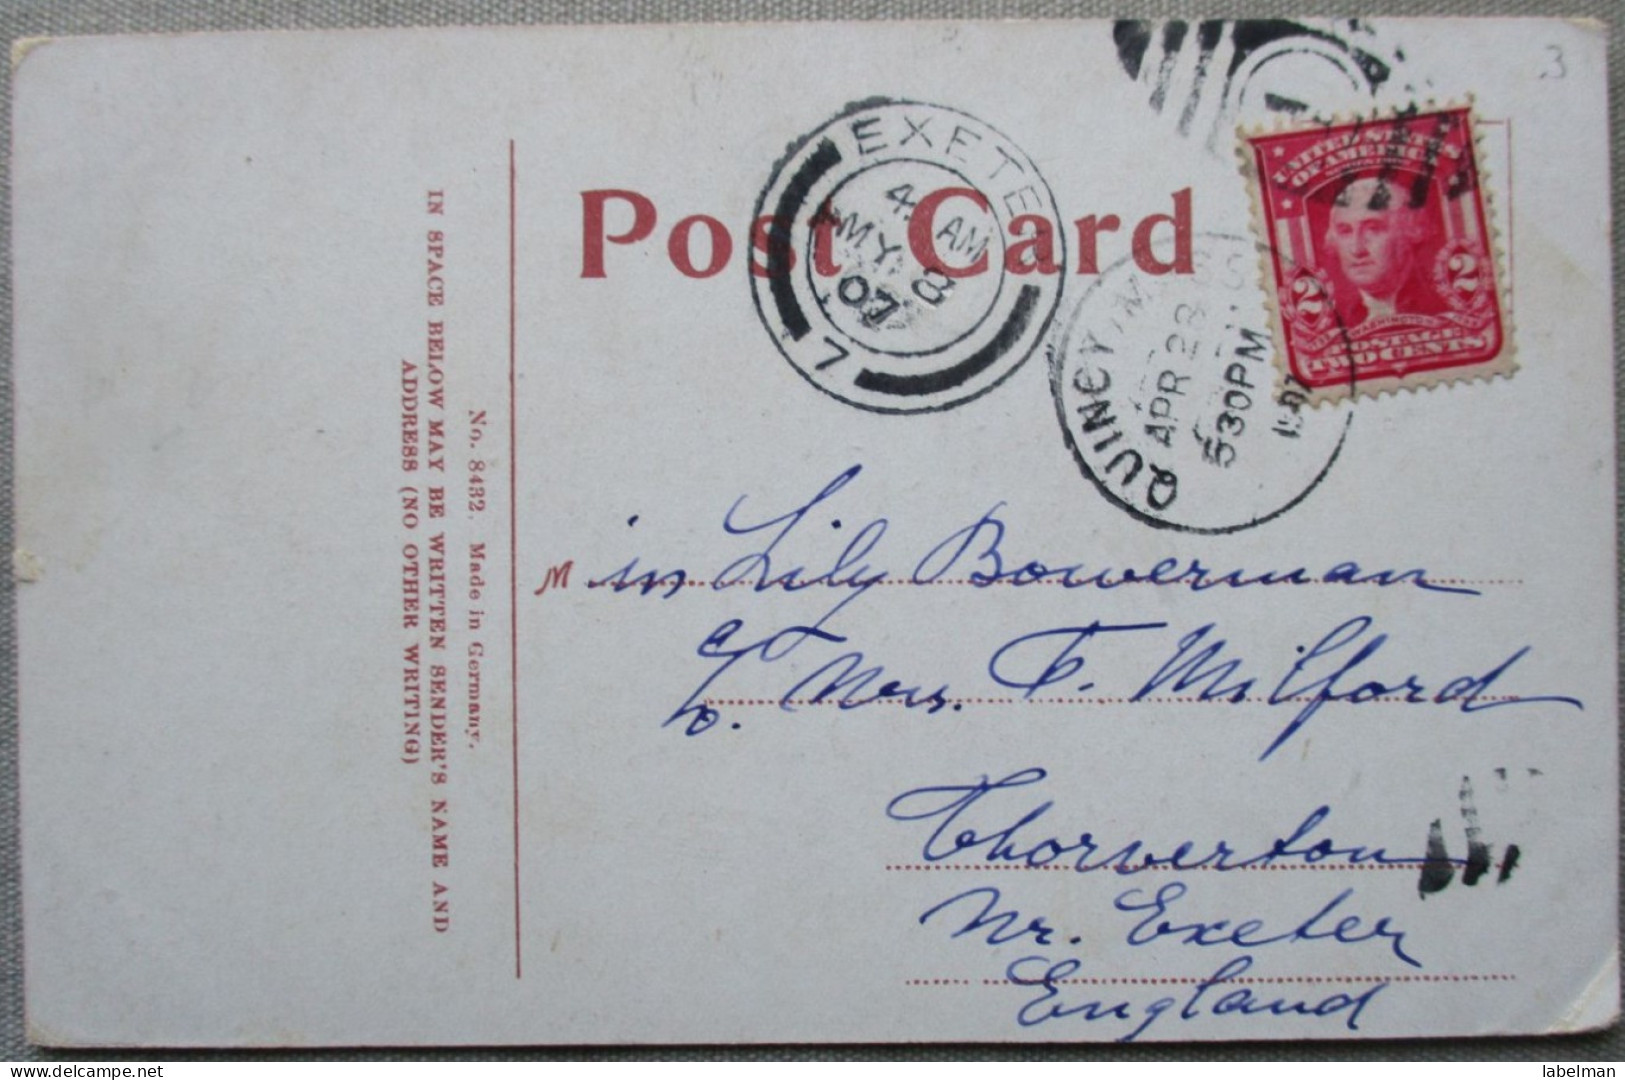 3
Post Card
EXETER
4. AM
MY 8
07
7
QUINCY, MASS.
APR 28
530PM
1907
UNITED STATES
OF AMERICA
2 2
POSTAGE
TWO CENTS
IN SPACE BELOW MAY BE WRITTEN SENDER'S NAME AND
ADDRESS (NO OTHER WRITING)
No. 8432. Made in Germany.
Miss Lily Bowerman
c/o. Mrs. F. Milford
Thorverton
Nr. Exeter
England
labelman
delcampe.net